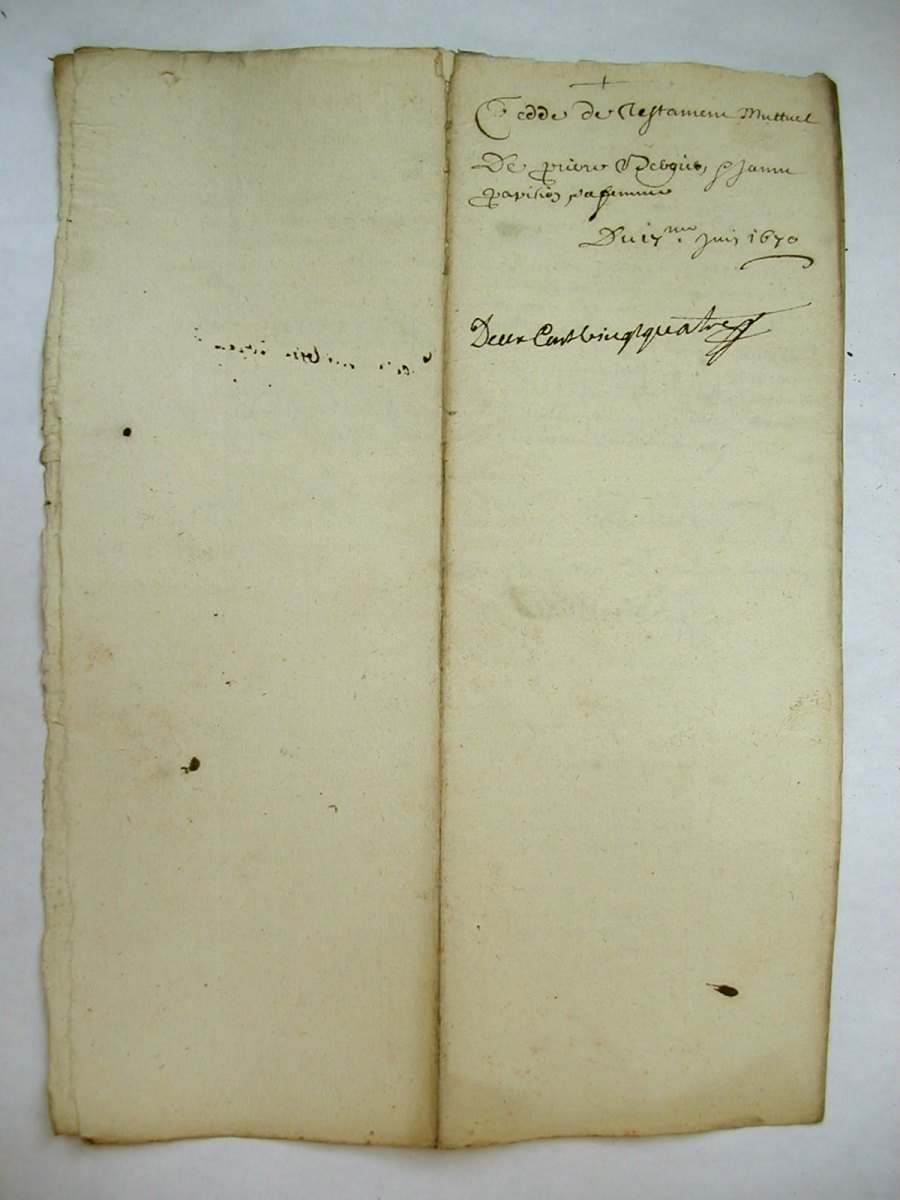 Cedde de Testament Muttuel
De pierre & Janne
pavilion sa femme
Du 17me Juin 1670
Deux Cent vingt quatre